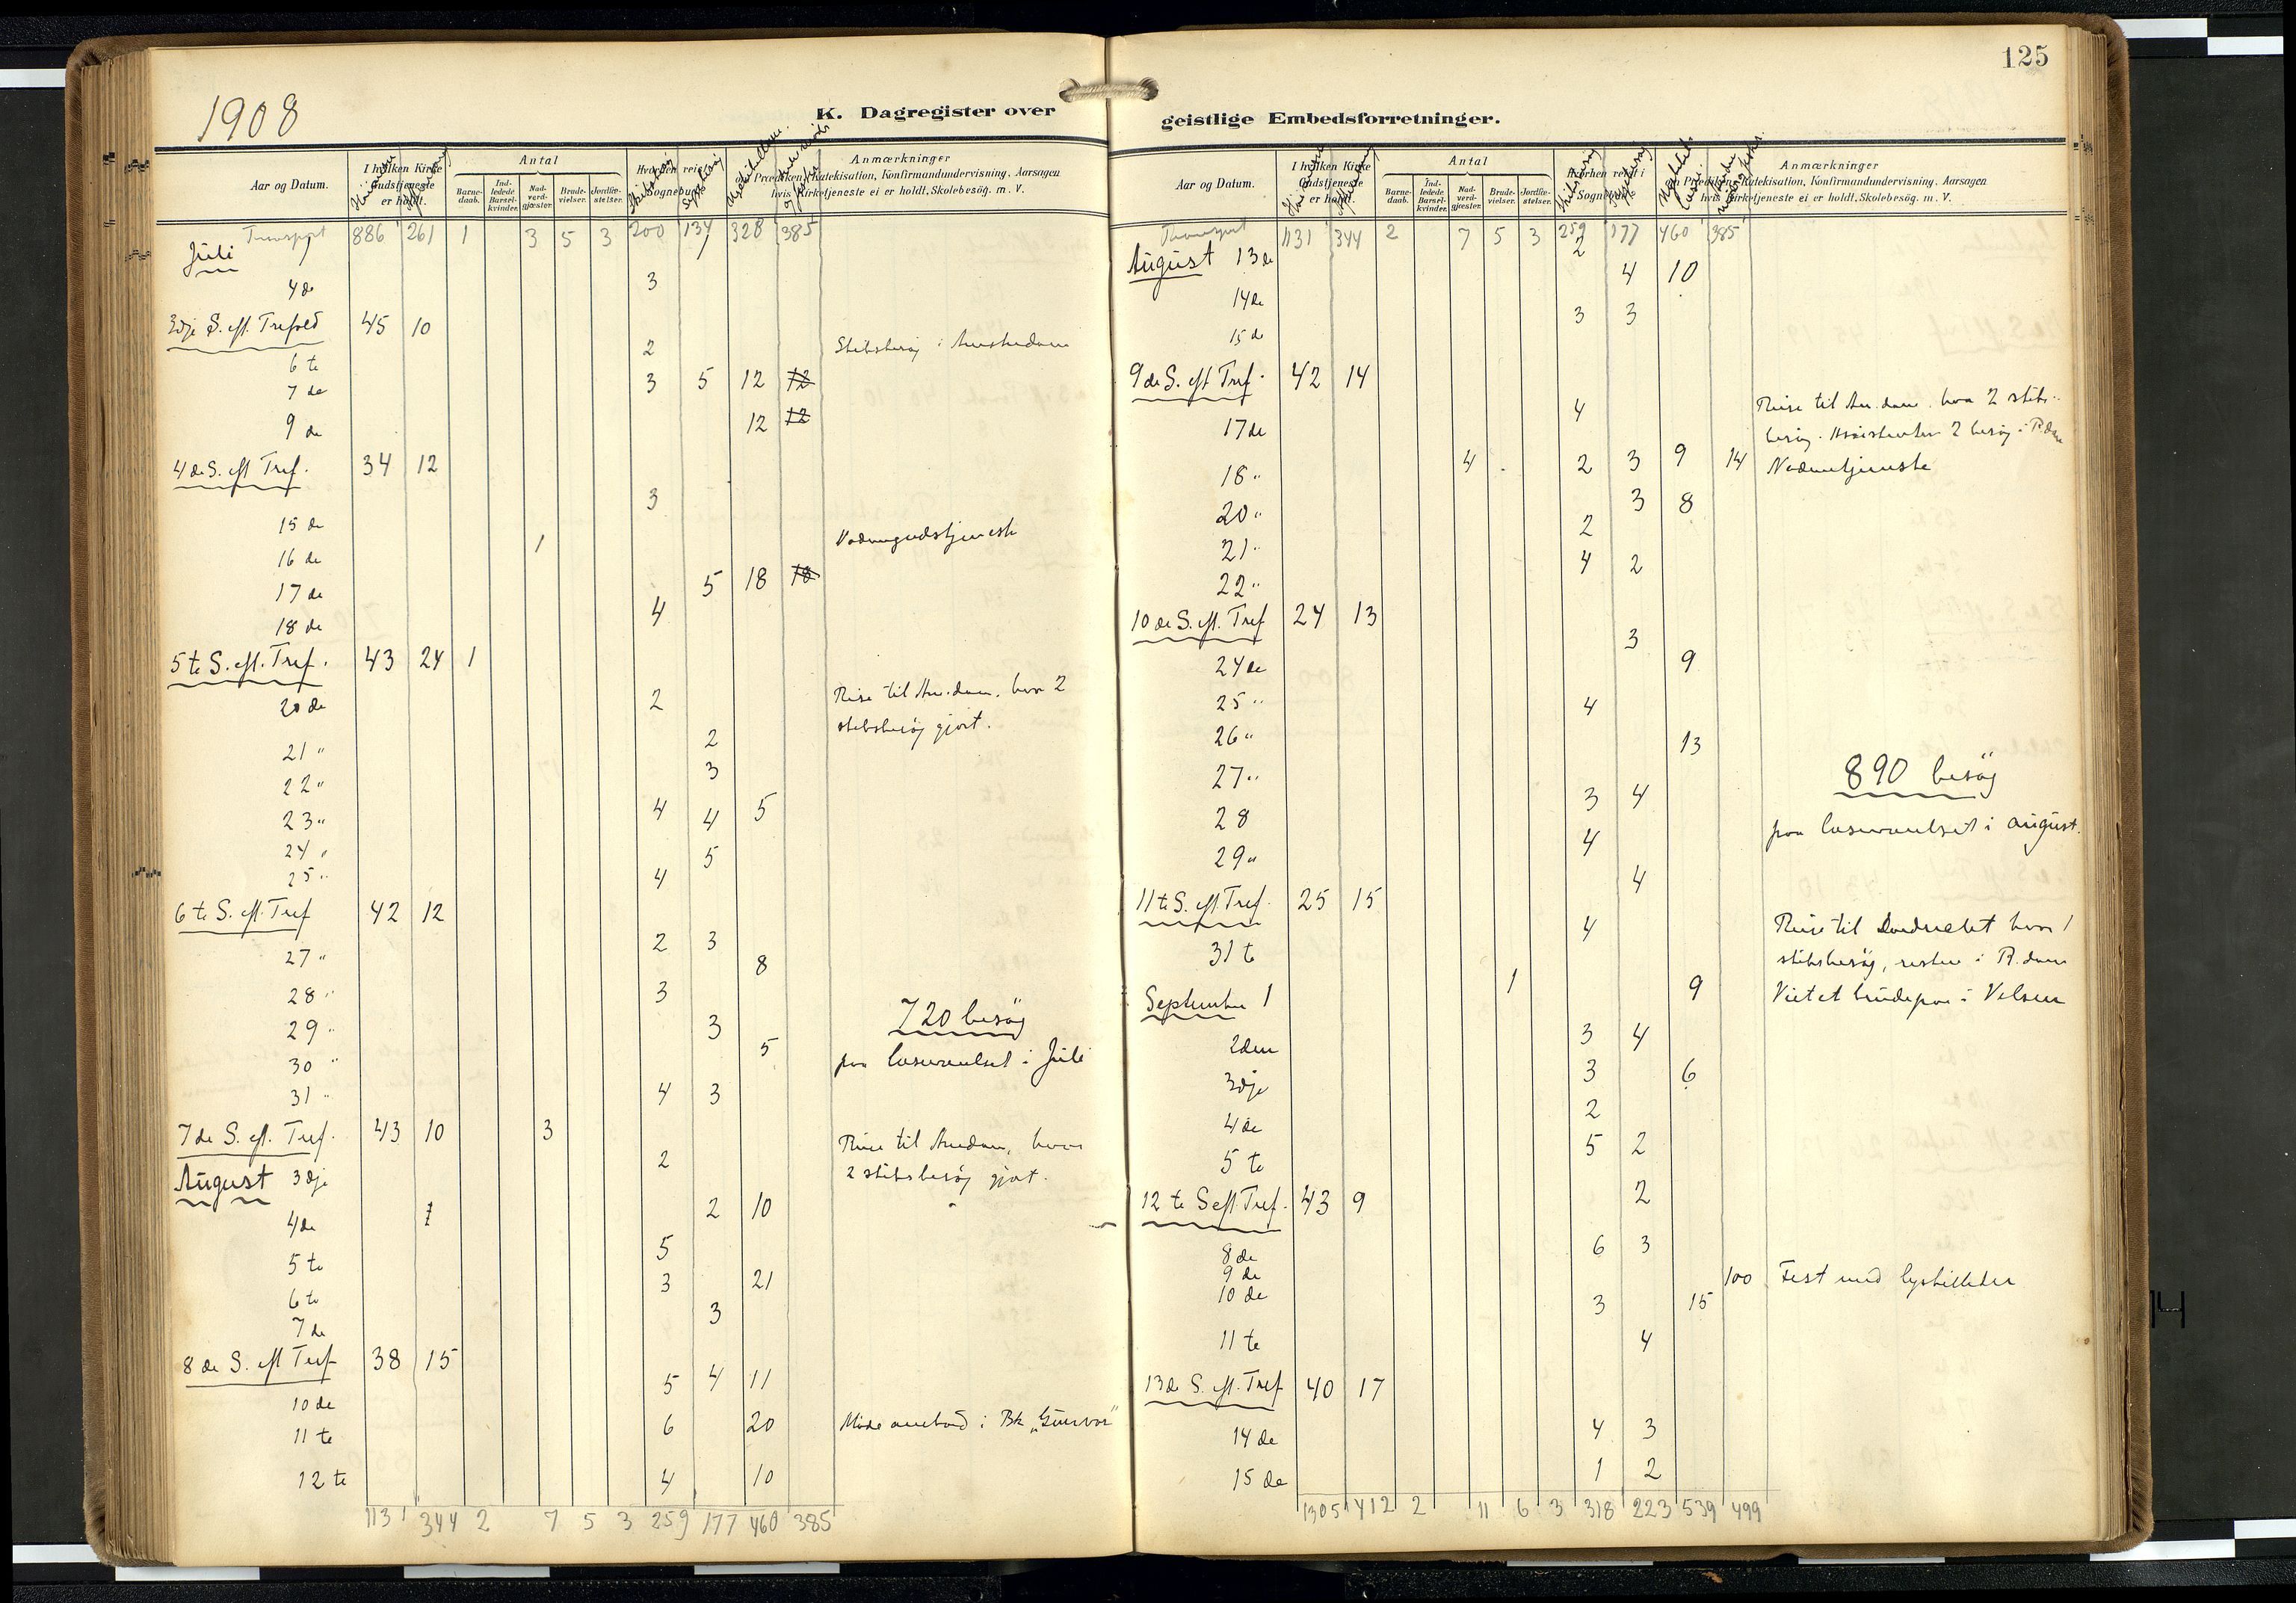 125
1908
K. Dagregister over
geistlige Embedsforretninger.
Aar og Datum.
I hvilken Kirke Gudstjeneste er holdt.
Antal
Barne-daab.
Ind-ledede Barsel-kvinder.
Nad-verd-gjæster.
Brude-vielser.
Jordfæ-stelser.
Hvorhen reist i Sognebud.
Anmærkninger
om Prædiken, Katekisation, Konfirmandundervisning, Aarsagen
hvis Kirketjeneste ei er holdt, Skolebesög. m. V.
Transport 886 261 1 3 5 3 200 134 328 385
Juli
4de 3
3dje S. eft. Trefold 45 10
6te 2 Skibsbesøg i Amsterdam
7de 3 5 12 12
9de 12 12
4de S. eft Tref. 34 12
15de 3
16de 1 Nadvergudstjeneste
17de 5 18 18
18de 4
5te S. eft. Tref. 43 24 1
20de 2 Reise til Am.dam, hvor 2
skibsbesøg gjort.
21" 2
22" 3
23" 4 4 5
24" 5
25" 4
6te S. eft. Tref 42 12
27" 2 3
28" 8
29" 3
720 besög
30" 3 5
paa læseværelset i Juli
31" 4 3
7de S. eft. Tref. 43 10 3
August 3dje 2 Reise til Amdam, hvor
2 skibsbesøg gjort.
4de 1 2 10
5te 5
6te 3 21
7de 3
8de S. eft Tref 38 15
10de 5 4 11
11te 6 20 Möde ombord i Bk "Gunvor"
12te 4 10
1131 344 2 7 5 3 259 177 460 385
Aar og Datum.
I hvilken Kirke Gudstjeneste er holdt.
Antal
Barne-daab.
Ind-ledede Barsel-kvinder.
Nad-verd-gjæster.
Brude-vielser.
Jordfæ-stelser.
Hvorhen reist i Sognebud.
Anmærkninger
om Prædiken, Katekisation, Konfirmandundervisning, Aarsagen
hvis Kirketjeneste ei er holdt, Skolebesög. m. V.
Transport 1131 344 2 7 5 3 259 177 460 385
August 13de 2
14de 4 10
15de 3 3
9de S. eft Tref. 42 14
17de 4 Reise til Am.dam. hvor 2 skibs-
besøg. Assistenten 2 besøg i R.dam
18" 4 2 3 9 14 Nadvertjeneste
20" 3 8
21" 2
22" 4 2
10de S. eft. Tref 24 13
24de 3
25" 9
26" 4
27" 13
890 besög
28 3 4
paa læseværelset i august.
29" 4
11te S. eft Tref. 25 15 4
31te 4 Reise til Dordrecht hvor 1
skibsbesøg, resten i R.dam
September 1 1 9 Viet et brudepar i Velsen
2den 3 4
3dje 3 6
4de 2
5te 5 2
12te S eft Tref. 43 9 2
8de 6 3
9de 100 Fest med lysbilleder
10de 3 15
11te 4
13de S. eft. Tref 40 17
14de 4 3
15de 1 2
1305 412 2 11 6 3 318 223 539 499